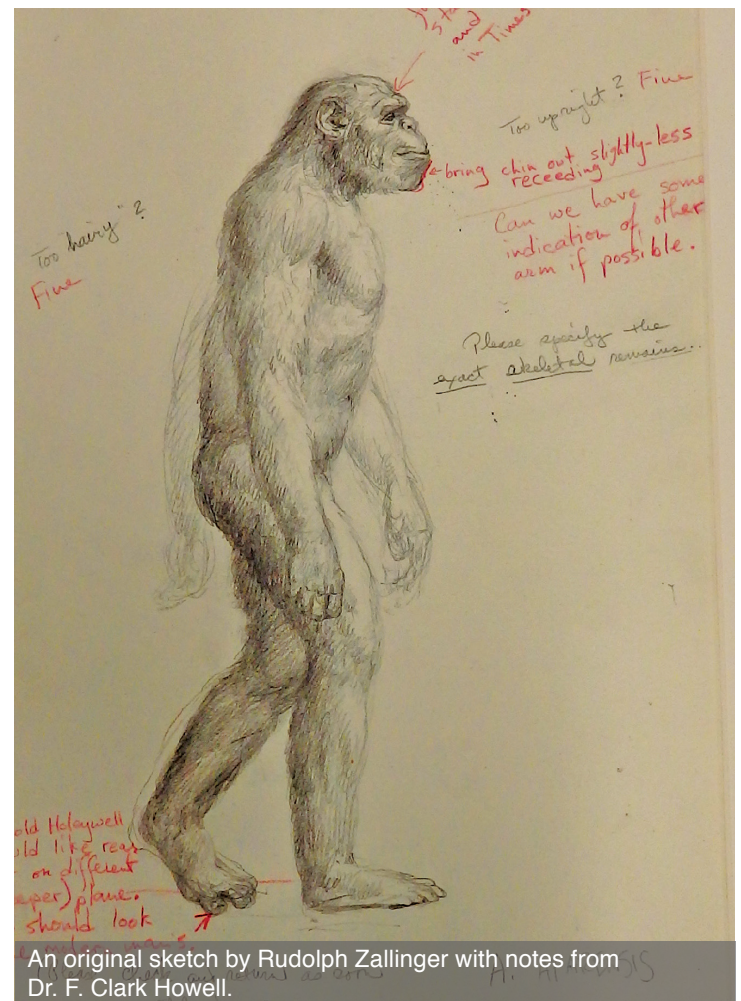 and
in Times
Too upright? Fine
bring chin out slightly-less
receeding
Can we have some
indication of other
arm if possible.
Too hairy?
Fine
Please specify the
exact skeletal remains..
old Holeywell
uld like rear
on different
eeper) plane.
should look
man's.
An original sketch by Rudolph Zallinger with notes from
Dr. F. Clark Howell.